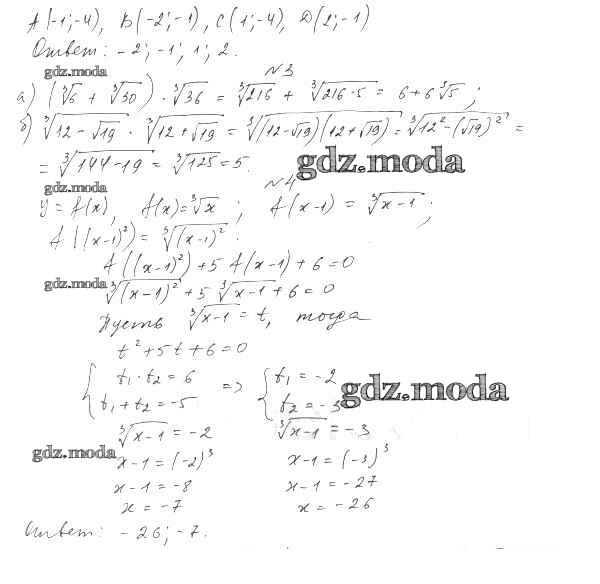 A(-1; -4), B(-2; -1), C(1; -4), D(2; -1)
Ответ: -2; -1; 1; 2.
gdz.moda
№3
а) (∛6 + ∛30) · ∛36 = ∛216 + ∛(216·5) = 6 + 6∛5;
б) ∛(12-√19) · ∛(12+√19) = ∛((12-√19)(12+√19)) = ∛(12²-(√19)²) =
= ∛(144-19) = ∛125 = 5.
gdz.moda
№4
gdz.moda
y = f(x), f(x) = ∛x; f(x-1) = ∛(x-1);
f((x-1)²) = ∛((x-1)²).
f((x-1)²) + 5f(x-1) + 6 = 0
gdz.moda
∛((x-1)²) + 5∛(x-1) + 6 = 0
Пусть ∛(x-1) = t, тогда
t² + 5t + 6 = 0
{ t₁ · t₂ = 6 => { t₁ = -2
t₁ + t₂ = -5 t₂ = -3
gdz.moda
∛(x-1) = -2 ∛(x-1) = -3
gdz.moda
x-1 = (-2)³ x-1 = (-3)³
x-1 = -8 x-1 = -27
x = -7 x = -26
Ответ: -26; -7.